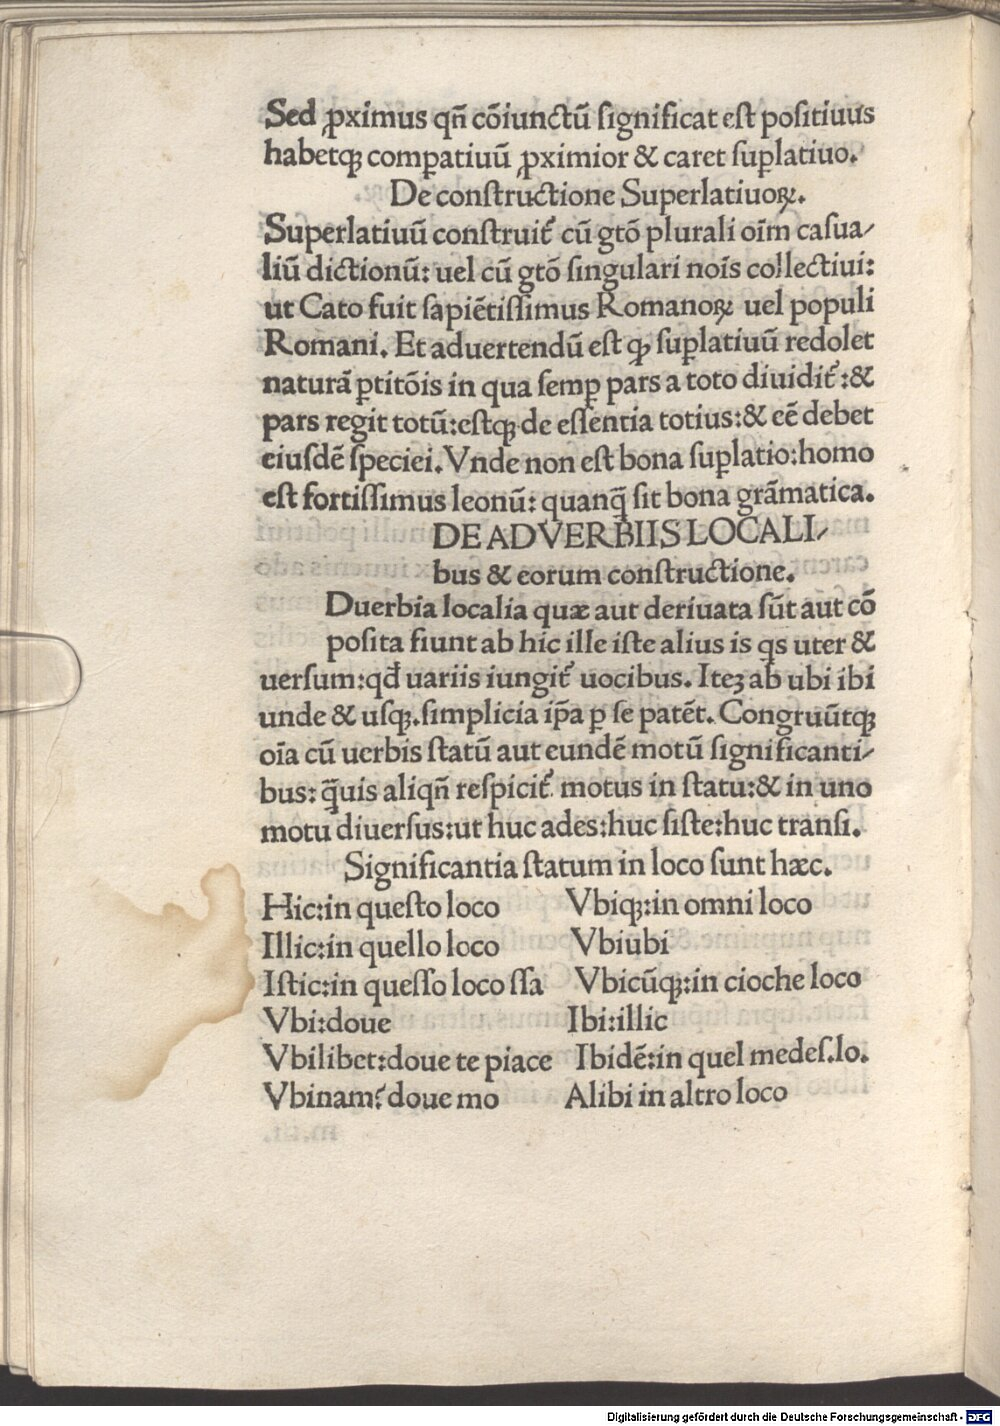 Sed ꝓximus qñ cõiunctũ ſignificat eſt poſitiuus
habetqꝫ comꝑatiuũ ꝓximior & caret ſuꝑlatiuo.
De conſtructione Superlatiuoꝝ.
Superlatiuũ conſtruit᷑ cũ gtõ plurali oĩm caſua/
liũ dictionũ: uel cũ gtõ ſingulari noĩs collectiui:
ut Cato fuit ſapiẽtiſſimus Romanoꝝ uel populi
Romani. Et aduertendũ eſt qꝫ ſuꝑlatiuũ redolet
naturã ꝑtitõis in qua ſemꝑ pars a toto diuidit᷑:&
pars regit totũ:estqꝫ de eſſentia totius:& eẽ debet
eiuſdẽ ſpeciei. Vnde non eſt bona ſuꝑlatio:homo
eſt fortiſſimus leonũ: quanq̃ ſit bona grãmatica.
DE ADVERBIIS LOCALI/
bus & eorum conſtructione.
Duerbia localia quæ aut deriuata sũt aut cõ
poſita fiunt ab hic ille iſte alius is qs uter &
uerſum:qđ uariis iungit᷑ uocibus. Iteꝫ ab ubi ibi
unde & uſqꝫ.ſimplicia ip̃a ꝑ ſe patẽt. Congruũtqꝫ
oĩa cũ uerbis ſtatũ aut eundẽ motũ ſignificanti/
bus: q̃uis aliqñ reſpicit᷑ motus in ſtatu:& in uno
motu diuerſus:ut huc ades:huc ſiſte:huc tranſi.
Significantia ſtatum in loco ſunt hæc.
Hic:in queſto loco Vbiqꝫ:in omni loco
Illic:in quello loco Vbiubi
Iſtic:in queſſo loco ſſa Vbicũqꝫ:in cioche loco
Vbi:doue Ibi:illic
Vbilibet:doue te piace Ibidẽ:in quel medeſ.lo.
Vbinam? doue mo Alibi in altro loco
Digitalisierung gefördert durch die Deutsche Forschungsgemeinschaft - DFG